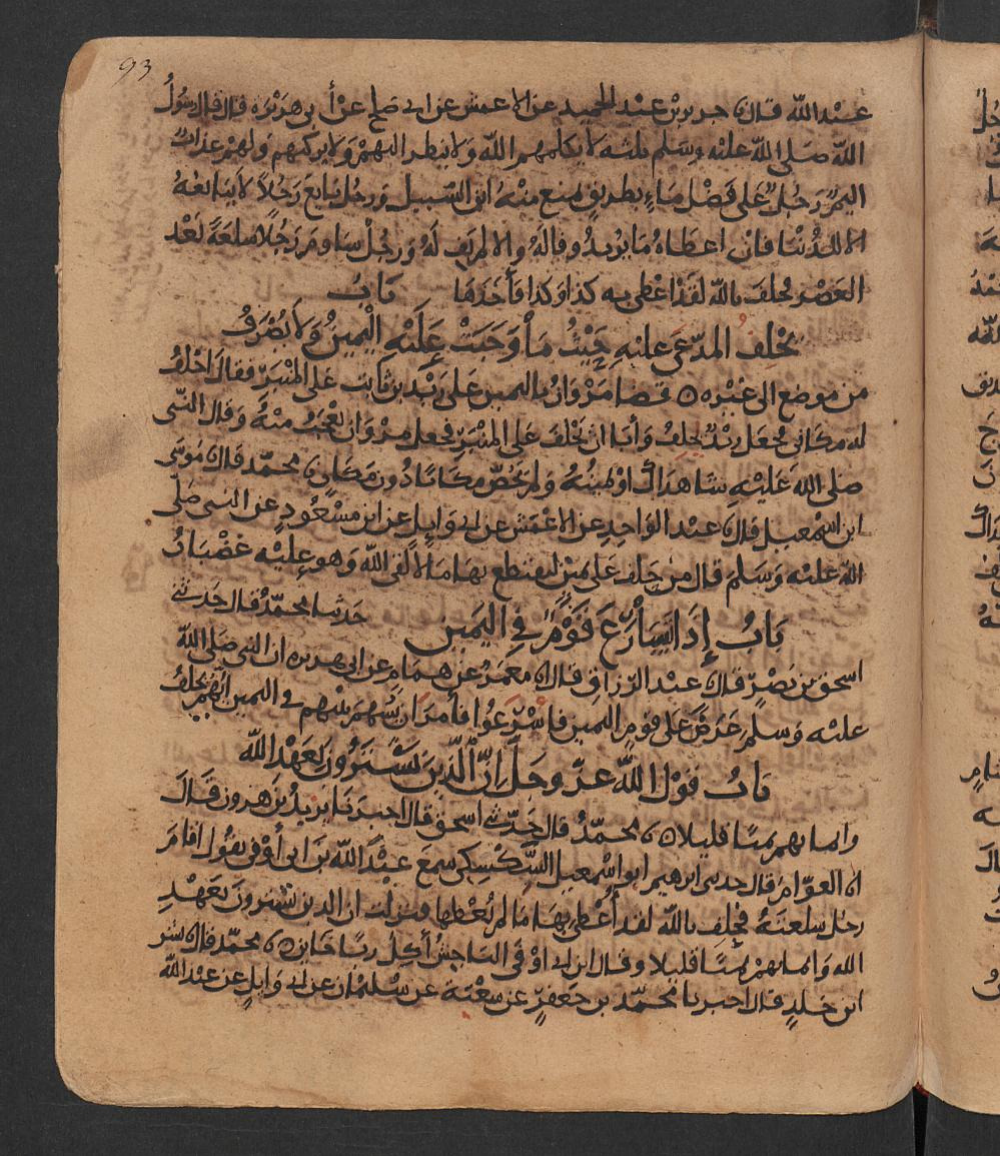 93
عبد الله قال نا جرير بن عبد الحميد عن الاعمش عن ابي صلح عن أبي هريره قال قال رسولُ
الله صلى الله عليه وسلم ثلثه لا يكلمهم الله ولا ينظر اليهم ولا يزكيهم ولهم عذابٌ
اليمٌ رَجُلٌ على فَضْل مَاءٍ بطريق يمنع منهُ ابن السبيل وَرجل بَايَعَ رَجُلاً لا يبايعهُ
الا للدُنْيا فان اعطاهُ مَا يريدُ وفا لَهُ وإلا لم يَفِ لَهُ وَرجُلٌ ساومَ رَجُلاً سلعَةً بَعْد
العَصْر فحلفَ بالله لقَد اعْطي به كذا وكذا فأخَذها بَابُ
يَحْلِفُ المدّعَى عليْهِ حَيْثُ مَا وَجَبَتْ عَلَيْهِ الْيَمِينُ وَلَا يُصْرَفُ
من موضع الى غيْره ه قضا مَرْوَانُ باليمين على زَيْد بن ثَابت على المنْبَرِ فقال احْلفُ
له مكاني فجعَل زيْدٌ يحلفُ وَأبَا ان يَحْلفَ على المنْبَرِ فجعل مرْوَان يَعْجَبُ منْهُ وَقال النبي
صلى الله عَلَيْهِ شاهداكَ أو يمينُهُ وَلم يخُصّ مكانًا دُونَ مَكَانٍ نا محمّد قال نا مُوسَى
ابن اسْمعيل قال نا عبْد الوَاحِدِ عن الاعْمَش عن ابي وَايلٍ عن ابن مسْعُودٍ عن النبي صَلى
الله عليه وَسَلم قال من حَلفَ على يمين ليقتطع بهَا مَالاً لقى الله وَهو عليْه غَضْبَانُ
بَابُ إذَا تَسَارَعَ قَوْمٌ في اليَمين حَدثنا محمّدٌ قال حَدثني
اسحق بن نَصْرٍ قال نا عبْد الرزاق قال نا معمَرٌ عن همَّام عن ابي هريره ان النبي صَلى الله
عليْه وَسلم عَرَضَ عَلى قومٍ اليمين فاسْرَعُوا فأمرَ ان يُسْهَم بيْنهم في اليمين ايُّهم يحلفُ
بَابُ قوْل الله عزّ وجَلّ إنّ الّذِينَ يَشْتَرُونَ بِعَهْدِ الله
وايمانهم ثمنًا قليلا ه نا محمّدٌ قال حدّثني اسحق قال اخبَرنَا يزيدُ بنُ هَرون قَالَ
انا العوّامُ قال حدثني ابرهيم ابو اسْمعيل السَّكْسِكي سمعَ عبْدَ الله بنَ ابي أوْفى يقُول اقامَ
رجُل سلعتَهُ فحلف بالله لقد أُعْطي بهَا مَا لم يُعْطها فنزلتْ ان الذين يشترونَ بعَهْدِ
الله وَايمانهمْ ثمنًا قليلا وقال ابن ابي اوْفى الناجشُ أكِلُ ربًا خَاينٌ ه نا محمّد قال نا بشر
ابن خَلدٍ قال اخبرنا محمّد بن جَعفَرٍ عن شعْبَة عن سُليْمان عن ابي وَايلٍ عن عبْد الله